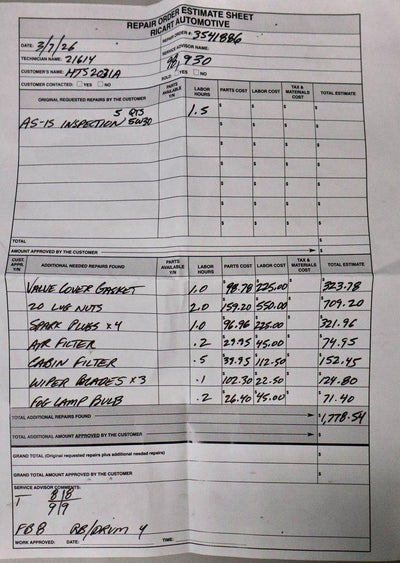 REPAIR ORDER ESTIMATE SHEET
RICART AUTOMOTIVE
DATE: 3/7/26 REPAIR ORDER #: 3541886
TECHNICIAN NAME: 21614 SERVICE ADVISOR NAME:
CUSTOMER'S NAME: HTS2031A 98,930
CUSTOMER CONTACTED: YES NO SOLD YES NO
ORIGINAL REQUESTED REPAIRS BY THE CUSTOMER PARTS AVAILABLE Y/N LABOR HOURS PARTS COST LABOR COST TAX & MATERIALS COST TOTAL ESTIMATE
5 QTS
AS-IS INSPECTION 5W30 1.5 $ $ $ $
TOTAL $
AMOUNT APPROVED BY THE CUSTOMER $
CUST. APPR. Y/N ADDITIONAL NEEDED REPAIRS FOUND PARTS AVAILABLE Y/N LABOR HOURS PARTS COST LABOR COST TAX & MATERIALS COST TOTAL ESTIMATE
VALVE COVER GASKET 1.0 $98.78 $225.00 $ $323.78
20 LUG NUTS 2.0 $159.20 $550.00 $ $709.20
SPARK PLUGS x 4 1.0 $96.96 $225.00 $ $321.96
AIR FILTER .2 $29.95 $45.00 $ $74.95
CABIN FILTER .5 $39.95 $112.50 $ $152.45
WIPER BLADES x 3 .1 $102.30 $22.50 $ $124.80
FOG LAMP BULB .2 $26.40 $45.00 $ $71.40
TOTAL ADDITIONAL REPAIRS FOUND $1,778.54
TOTAL ADDITIONAL AMOUNT APPROVED BY THE CUSTOMER $
GRAND TOTAL (Original requested repairs plus additional needed repairs) $
GRAND TOTAL AMOUNT APPROVED BY THE CUSTOMER $
SERVICE ADVISOR COMMENTS:
T 8|8
9|9
FB 8 RB/DRUM 4
WORK APPROVED: DATE: TIME: